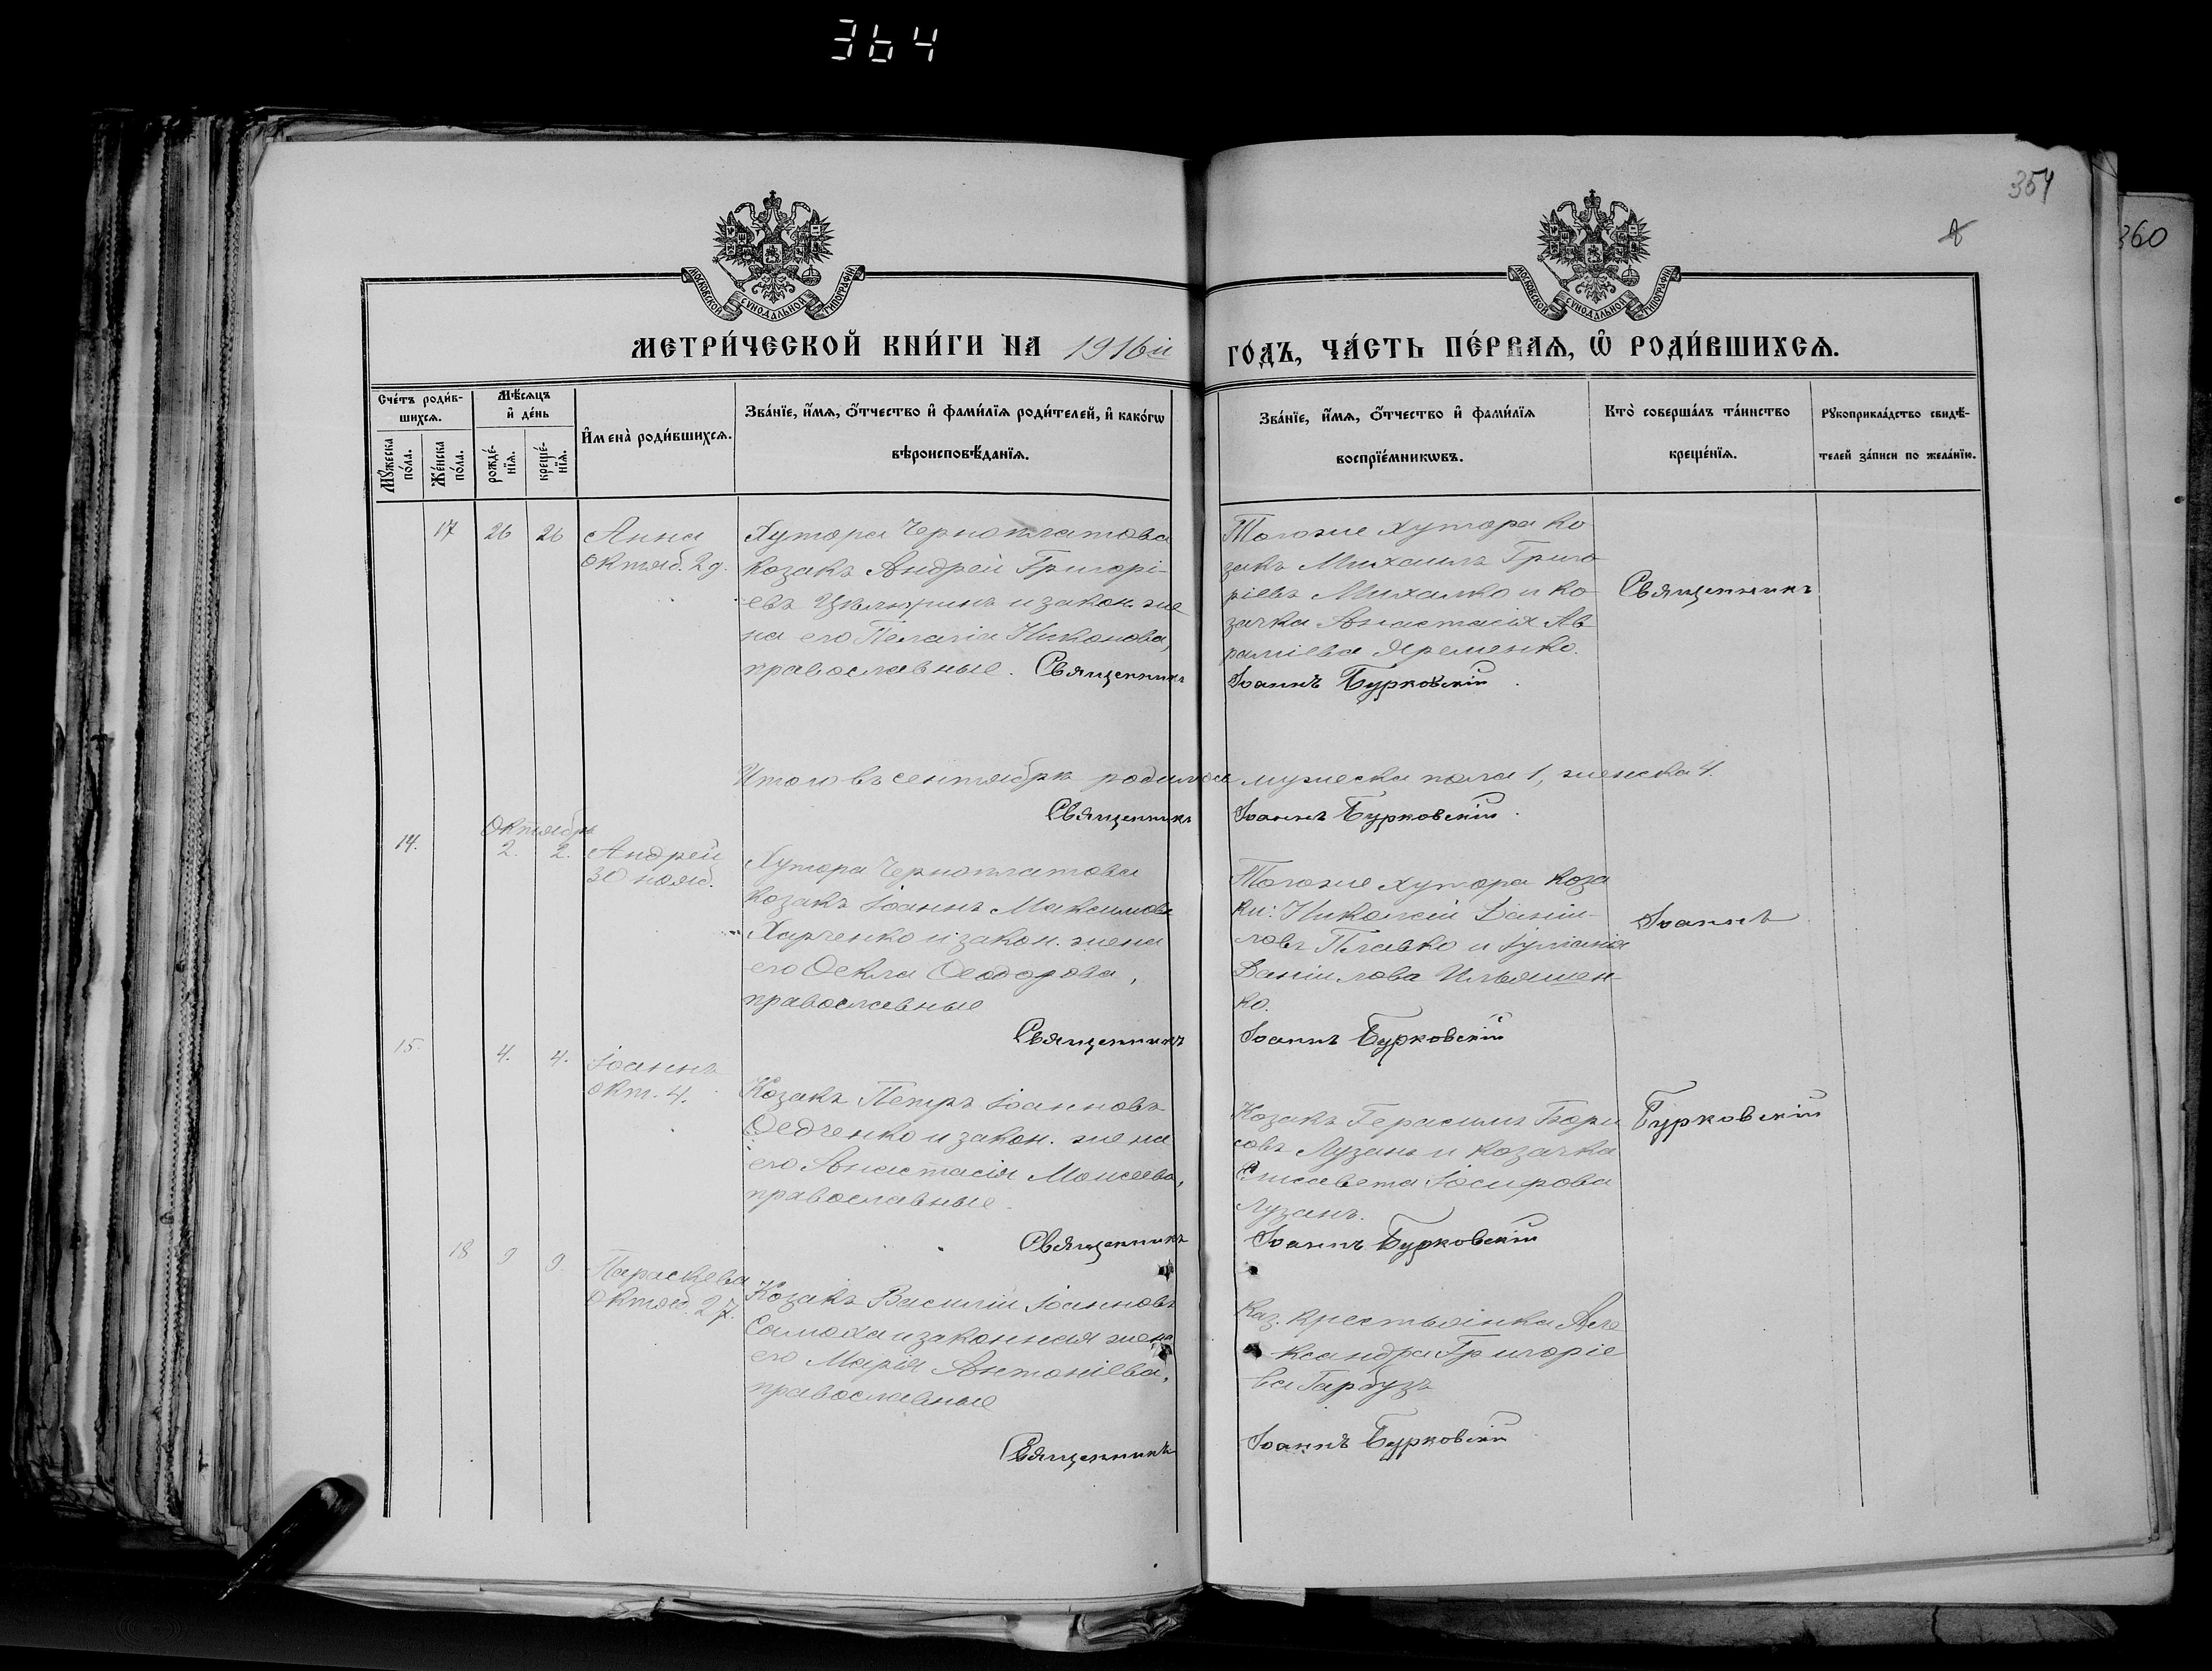 364
354
360
МОСКОВСКОЙ СѴНОДАЛЬНОЙ ТИПОГРАФІИ
МОСКОВСКОЙ СѴНОДАЛЬНОЙ ТИПОГРАФІИ
МЕТРИ́ЧЕСКОЙ КНИ́ГИ НА 1916й ГО́ДЪ, ЧА́СТЬ ПЕ́РВАЯ, Ѽ РОДИ́ВШИХСЯ.
Сче́тъ роди́в-
шихся.
Мꙋ́жеска по́ла.
Же́нска по́ла.
Мѣ́сяцъ и҆ де́нь
рожде́-нїя.
креще́-нїя.
И҆мена̀ роди́вшихся.
Зва́нїе, и҆́мя, ѻ҆́тчество и҆ фами́лїя роди́телей, и҆ како́гѡ
вѣроисповѣ́данїя.
Зва́нїе, и҆́мя, ѻ҆́тчество и҆ фами́лїя
воспрїе́мникѡвъ.
Кто̀ соверша́лъ та́инство
креще́нїя.
Рꙋкоприкла́дство свидѣ́-
телей за́писи по жела́нїю.
17 26 26 Анна
Октяб. 29.
Хутора Черноплатова
козакъ Андрей Григорі-
евъ и закон. же
на его Пелагія Никонова,
православные. Священникъ
Тогоже хутора ко
закъ Михаилъ Григо
ріевъ Михалко и ко
зачка Анастасія Ав
раміева Яременко.
Іоаннъ Бурковскій
Священникъ
Итого въ сентябрѣ родилось мужеска пола 1, женска 4.
Священникъ Іоаннъ Бурковскій
Октябрь
14. 2. 2. Андрей
30 нояб.
Хутора Черноплатова
козакъ Іоаннъ Максимовъ
Харченко и закон. жена
его Ѳекла Ѳеодорова,
православные
Священникъ
Тогоже хутора коза
ки: Николай Даніи-
ловъ Плавко и Іуліанія
Даніилова Ильяшен-
ко.
Іоаннъ Бурковскій
Іоаннъ
15. 4. 4. Іоаннъ
окт. 4.
Козакъ Петръ Іоанновъ
Ѳедченко и закон. жена
его Анастасія Моисеева,
православные
Священникъ
Козакъ Герасимъ Бори
совъ Лузанъ и козачка
Елисавета Іосифова
Лузанъ.
Іоаннъ Бурковскій
Бурковскій
18 9 9. Параскева
октяб. 27.
Козакъ Василій Іоанновъ
Самоха и законная жена
его Марія Антоніева,
православные
Священникъ
Каз. крестьянка Але
ксандра Григоріе
ва Гарбузъ
Іоаннъ Бурковскій